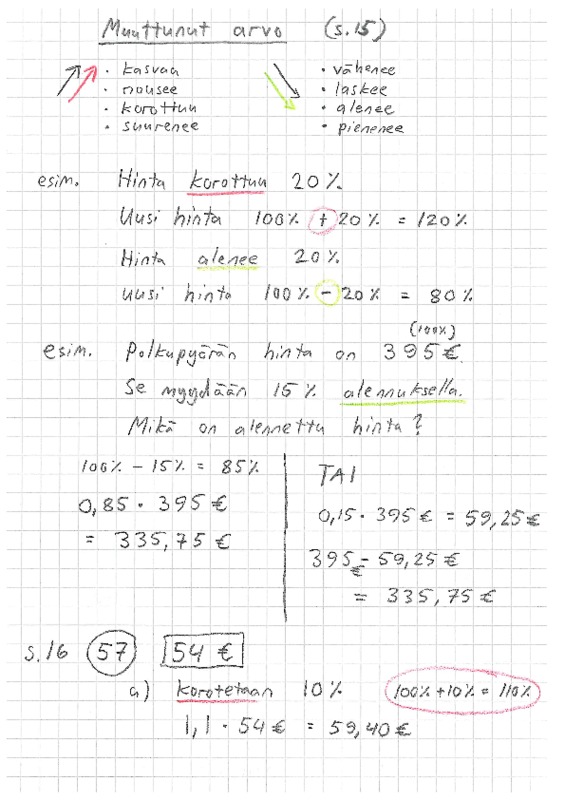 Muuttunut arvo (s.15)
• kasvaa • vähenee
• nousee • laskee
• korottuu • alenee
• suurenee • pienenee
esim. Hinta korottuu 20%
Uusi hinta 100% + 20% = 120%
Hinta alenee 20%
Uusi hinta 100% - 20% = 80%
(100%)
esim. Polkupyörän hinta on 395€.
Se myydään 15% alennuksella.
Mikä on alennettu hinta?
100% - 15% = 85%
0,85 • 395 €
= 335,75 €
TAI
0,15 • 395 € = 59,25€
395€ - 59,25€
= 335,75 €
s.16 57 54 €
a) korotetaan 10% 100% + 10% = 110%
1,1 • 54 € = 59,40 €